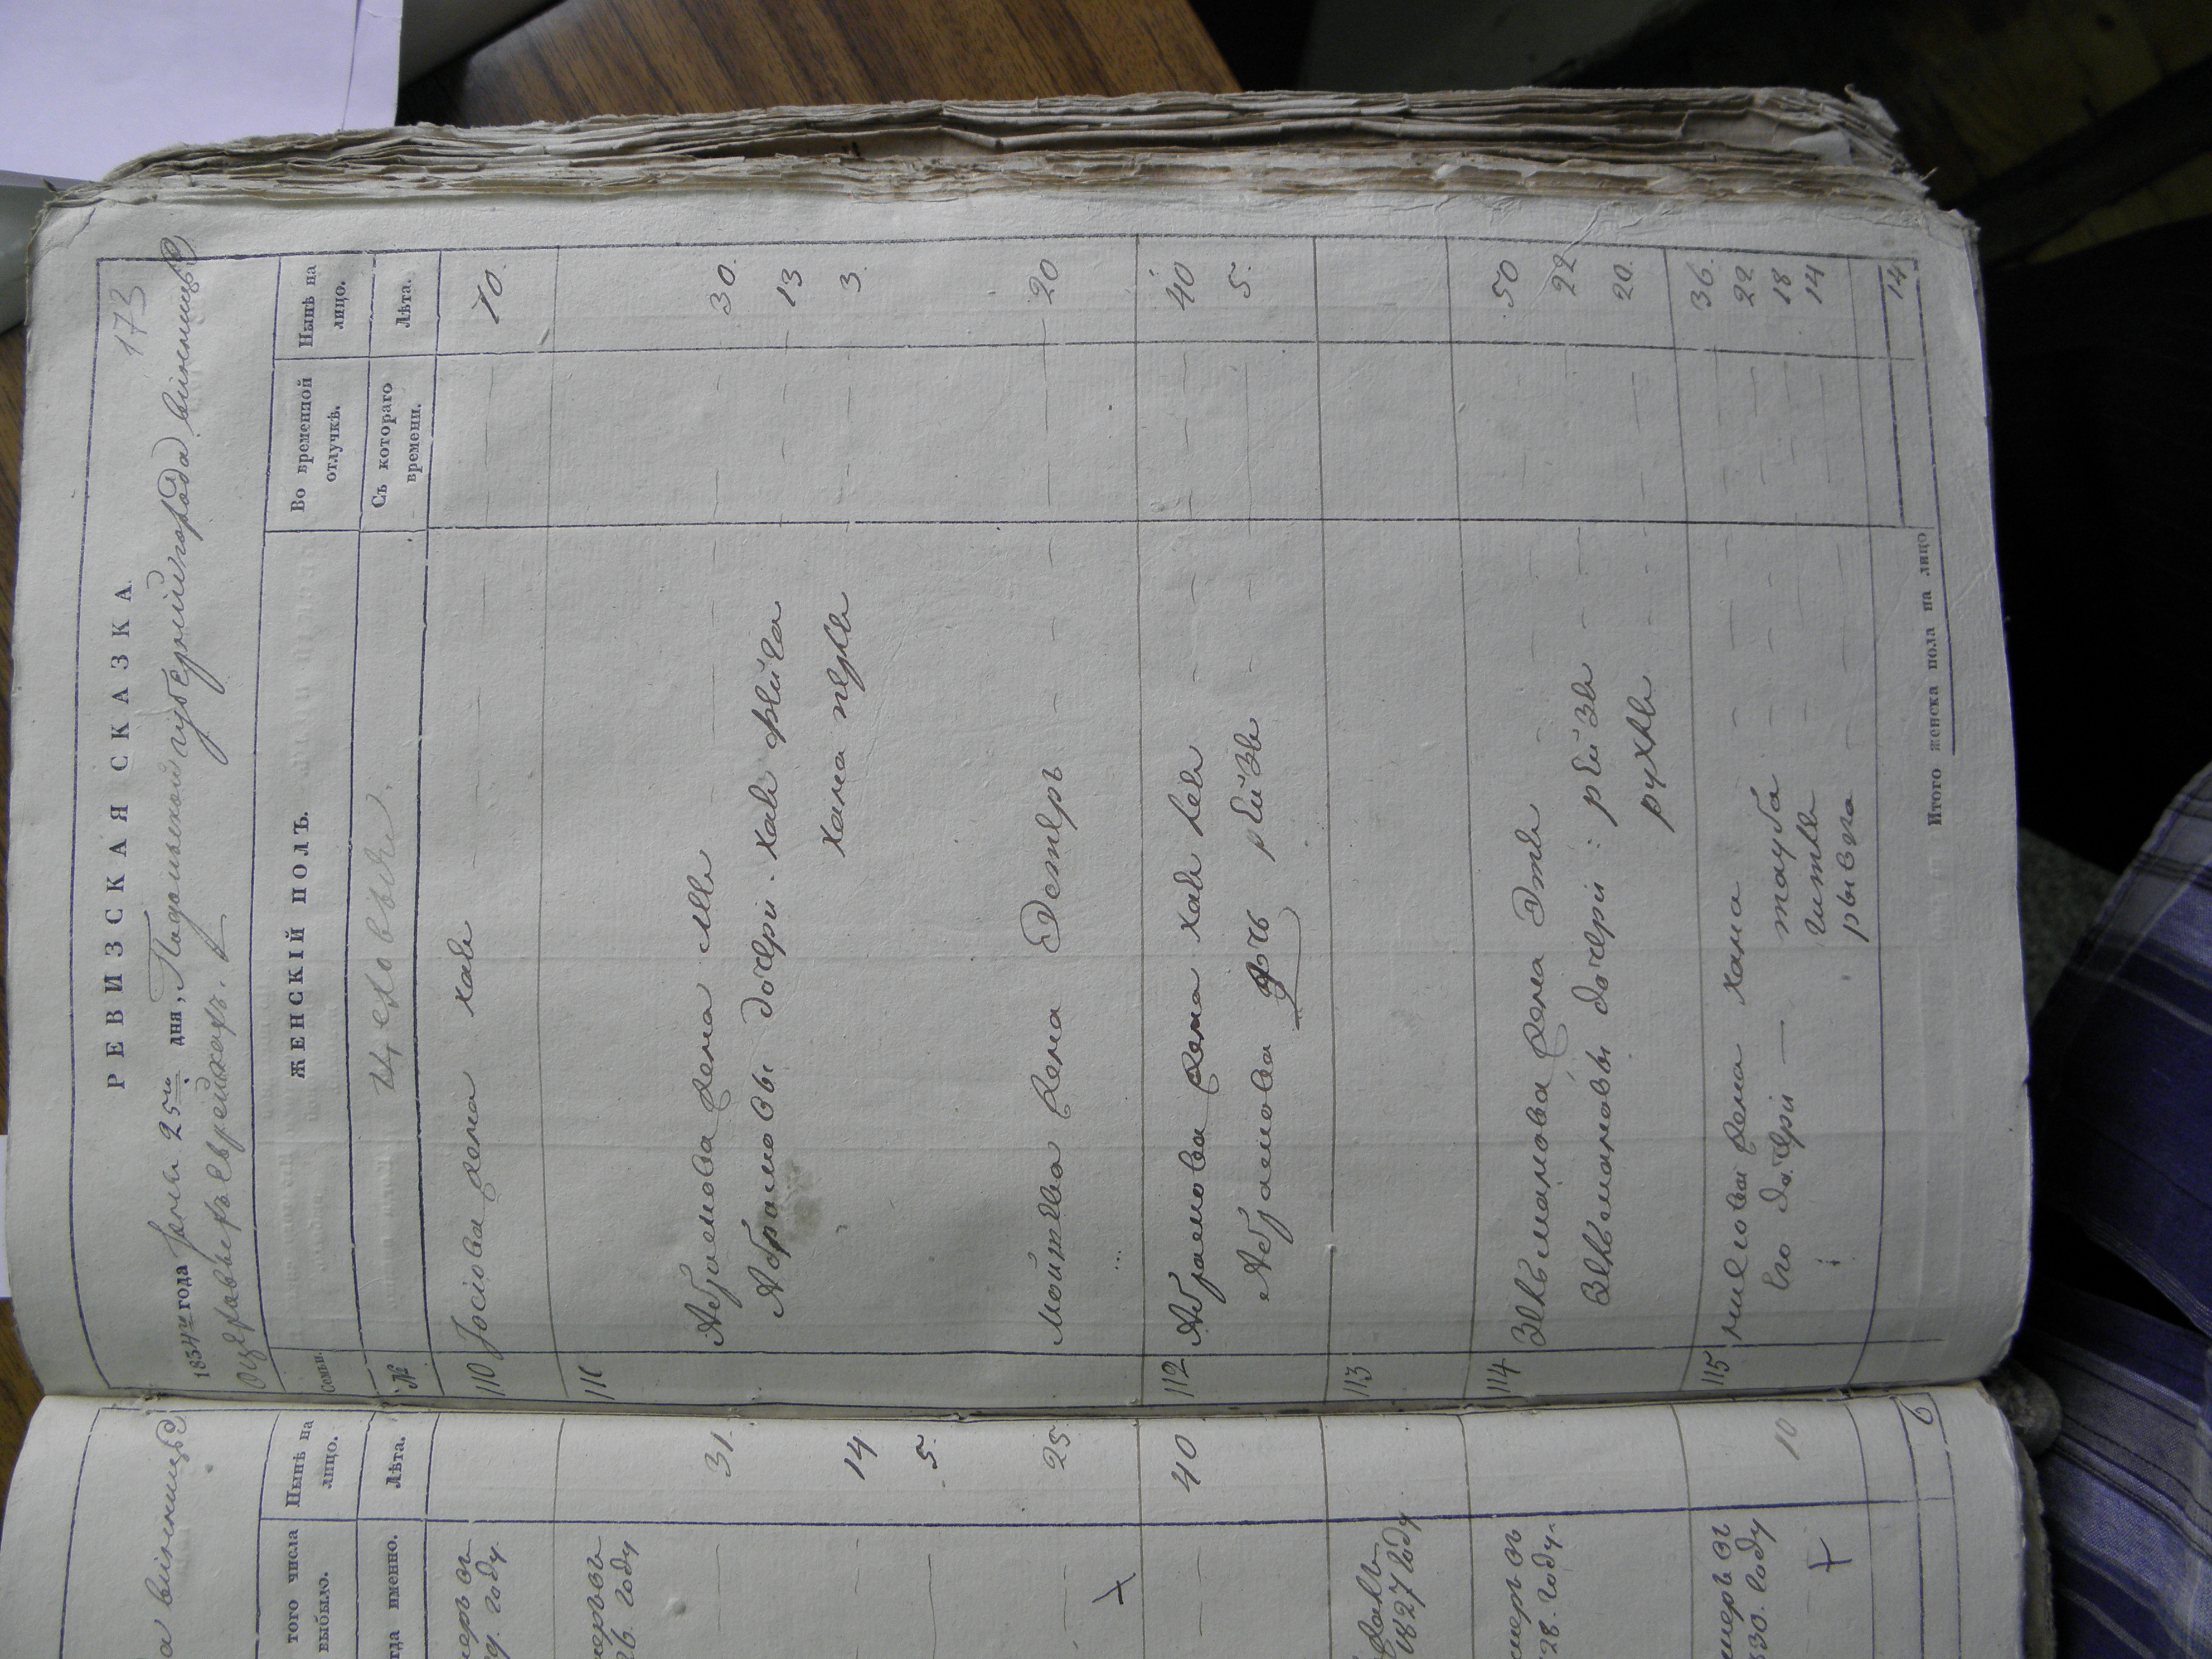 РЕВИЗСКАЯ СКАЗКА.
173
1834го года 25го дня, Подольской губернии города винницы
о евреяхъ.
Семьи.
ЖЕНСКІЙ ПОЛЪ.
Во временной отлучкѣ.
Нынѣ на лицо.
№
Съ котораго времени.
Лѣта.
110 Іосіова жена хая — 70.
111
Абрамова жена — 30.
Абрамовы дочери. хая фейга — 13
хана перля — 3.
Мошкова жена Эстеръ — 20
112 Абрамова жена хая лея — 40
Абрамова дочь рейзя — 5.
113
114 Зельмановa жена Этя — 50
Зельмановы дочери: рейзя — 22
рухля — 20.
115 жена хана — 36.
его дочери — тауба — 22
гитля — 18
рывка — 14
Итого женска пола на лицо 14
а винницы
того числа выбыло.
Нынѣ на лицо.
гда именно.
Лѣта.
меръ въ
году.
меръ въ
26. году
31.
14
5.
25
40
1827 году
меръ въ
28. году.
меръ въ
830. году
10
6